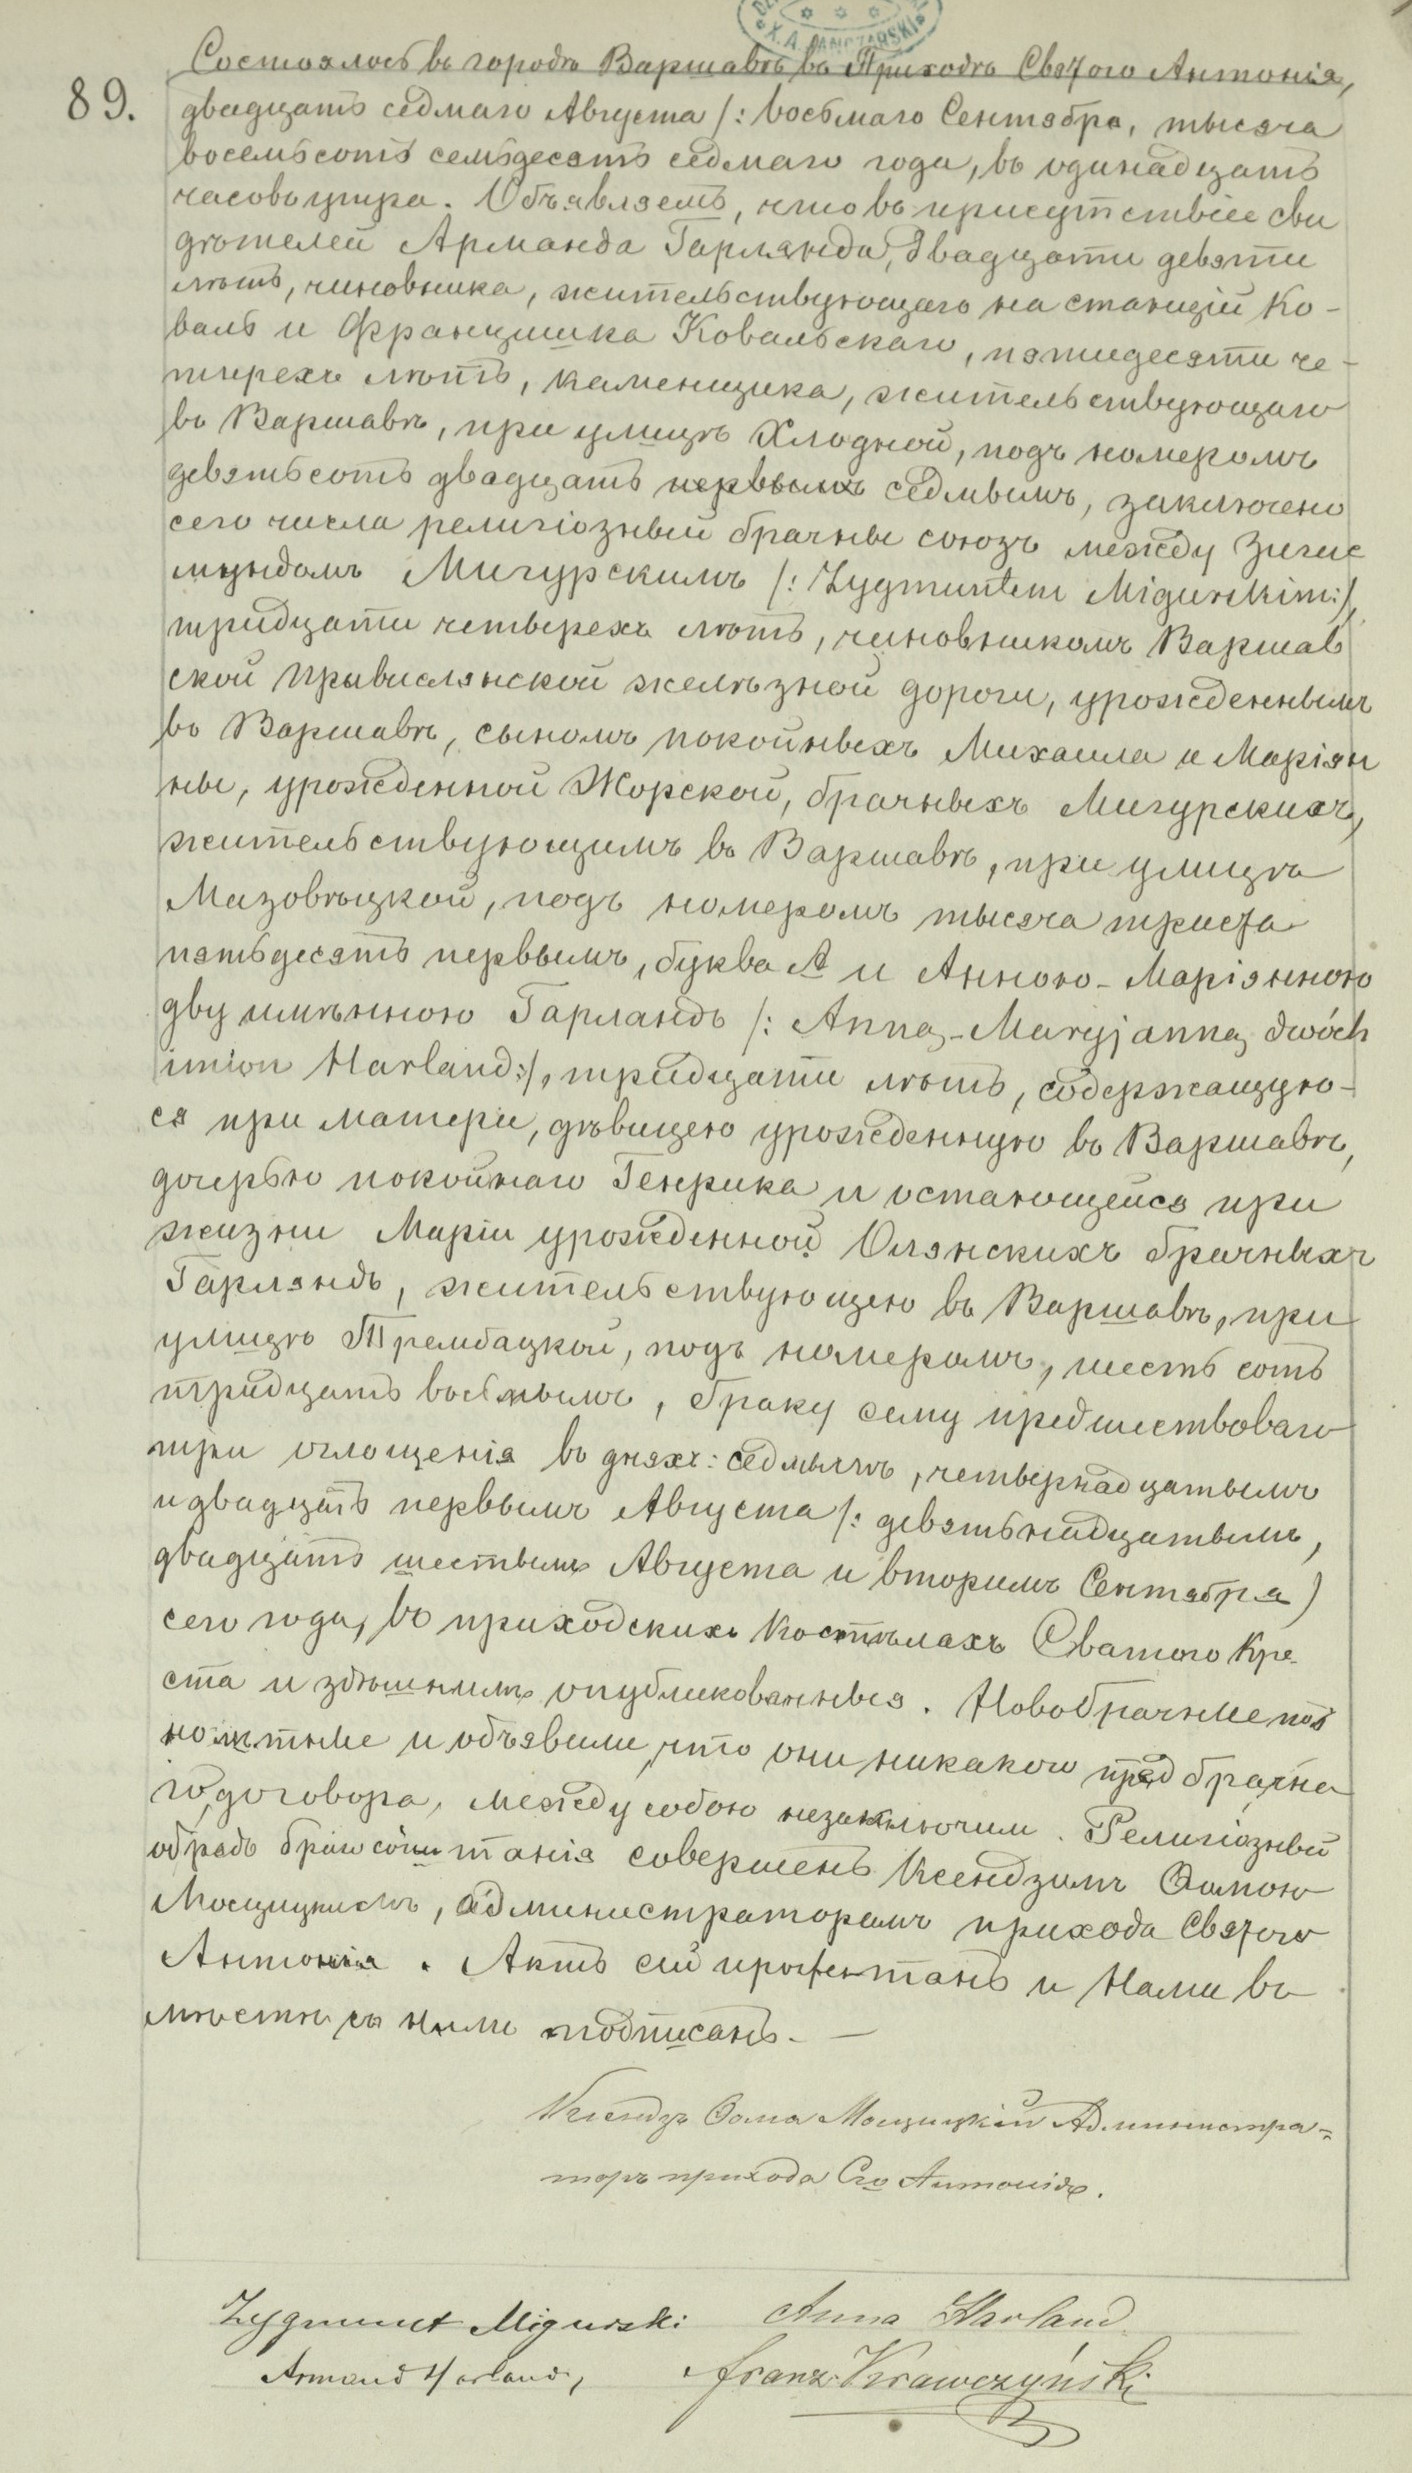 X. A. JANCZARSKI
Состоялось въ городѣ Варшавѣ въ Приходѣ Святого Антонія,
89. двадцать седмаго Августа /: восьмаго Сентября, тысяча
восемьсотъ семьдесятъ седмаго года, въ одинадцать
часовъ утра. Объявляемъ, что въ присутствіе сви
дѣтелей Арманда Гарлянда, двадцати девяти
лѣтъ, чиновника, жительствующаго на станціи Ко-
валь и Францишка Ковальскаго, пятидесяти че-
тырехъ лѣтъ, каменщика, жительствующаго
въ Варшавѣ, при улицѣ Хлодной, подъ номеромъ
девятьсотъ двадцать первымъ седмымъ, заключено
сего числа религіозный брачны союзъ между Зигис
мундомъ Мигурскимъ /: Zygmuntem Migurskim:/,
тридцати четверехъ лѣтъ, чиновникомъ Варшав
ской Привислянской желѣзной дороги, урожденнымъ
въ Варшавѣ, сыномъ покойныхъ Михаила и Маріян
ны, урожденной Жорской, брачныхъ Мигурскихъ,
жительствующимъ въ Варшавѣ, при улицѣ
Мазовѣцкой, подъ номеромъ тысяча триста
пятьдесятъ первымъ, буква А и Анною-Маріянною
двуимѣнною Гарландъ /: Anną-Maryjanną dwóch
imion Harland:/, тридцати лѣтъ, содержащую-
ся при матери, дѣвицею урожденную въ Варшавѣ,
дочерью покойнаго Генрика и остающейся при
жизни Маріи урожденной Олянскихъ брачныхъ
Гарляндъ, жительствующею въ Варшавѣ, при
улицѣ Трембацкой, подъ номеромъ, шесть сотъ
тридцать восьмымъ, браку сему предшествоваго
три оглощенія въ дняхъ: седмымъ, четвернадцатымъ
и двадцать первымъ Августа /: девятьнадцатымъ,
двадцать шестымъ Августа и вторимъ Сентября)
сего года, въ приходскихъ костѣлахъ Сватого Кре-
ста и здѣшнимъ опубликованныя. Новобрачные
и объявили, что они никакого пред брачна
го договора, между собою незаключили. Религіозный
обрядъ бракосочитанія совершенъ Ксендзимъ Ѳомою
Мощицкимъ, администраторомъ прихода Святого
Антонія. Актъ сій прочентанъ и Нами въ
мѣстѣ съ ними подписанъ. —
Ксендзъ Ѳома Мощицкій Администра-
торъ прихода Сго Антонія.
Zygmunt Migurski Anna Harland
Armand Harland, Franz. Krawczyński